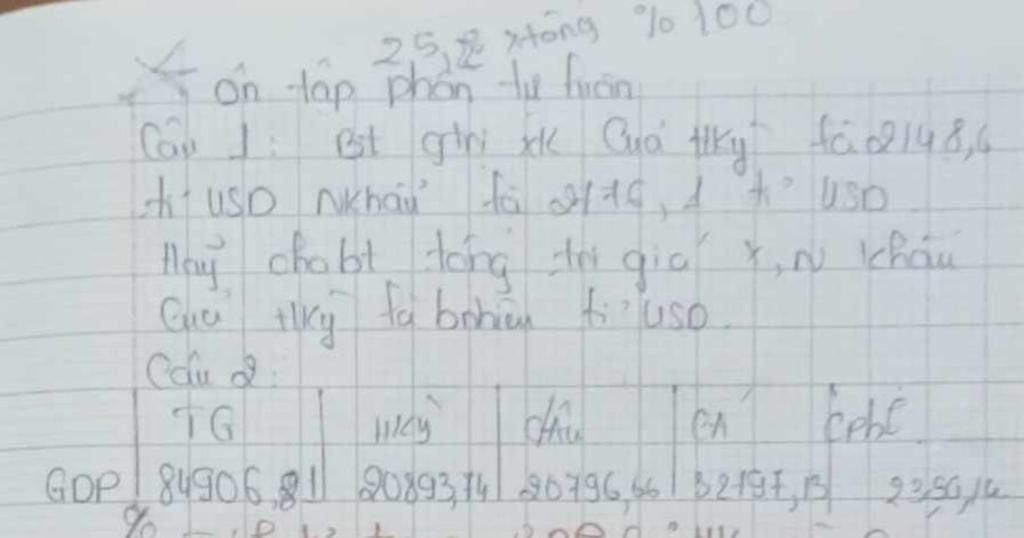 25,2 xtổng % 100
ôn tập phần tự luận
Câu 1: Bt gtrị xk Của HKỳ là 2148,6
tỉ USD Nkhẩu là 2176,1 tỉ USD
Hãy cho bt tổng trị giá X, N khẩu
Của HKỳ là bnhiêu tỉ USD.
Câu 2:
TG HKỳ châu CÁ Cphi
GDP 84906,81 20893,74 20796,66 32197,13
%